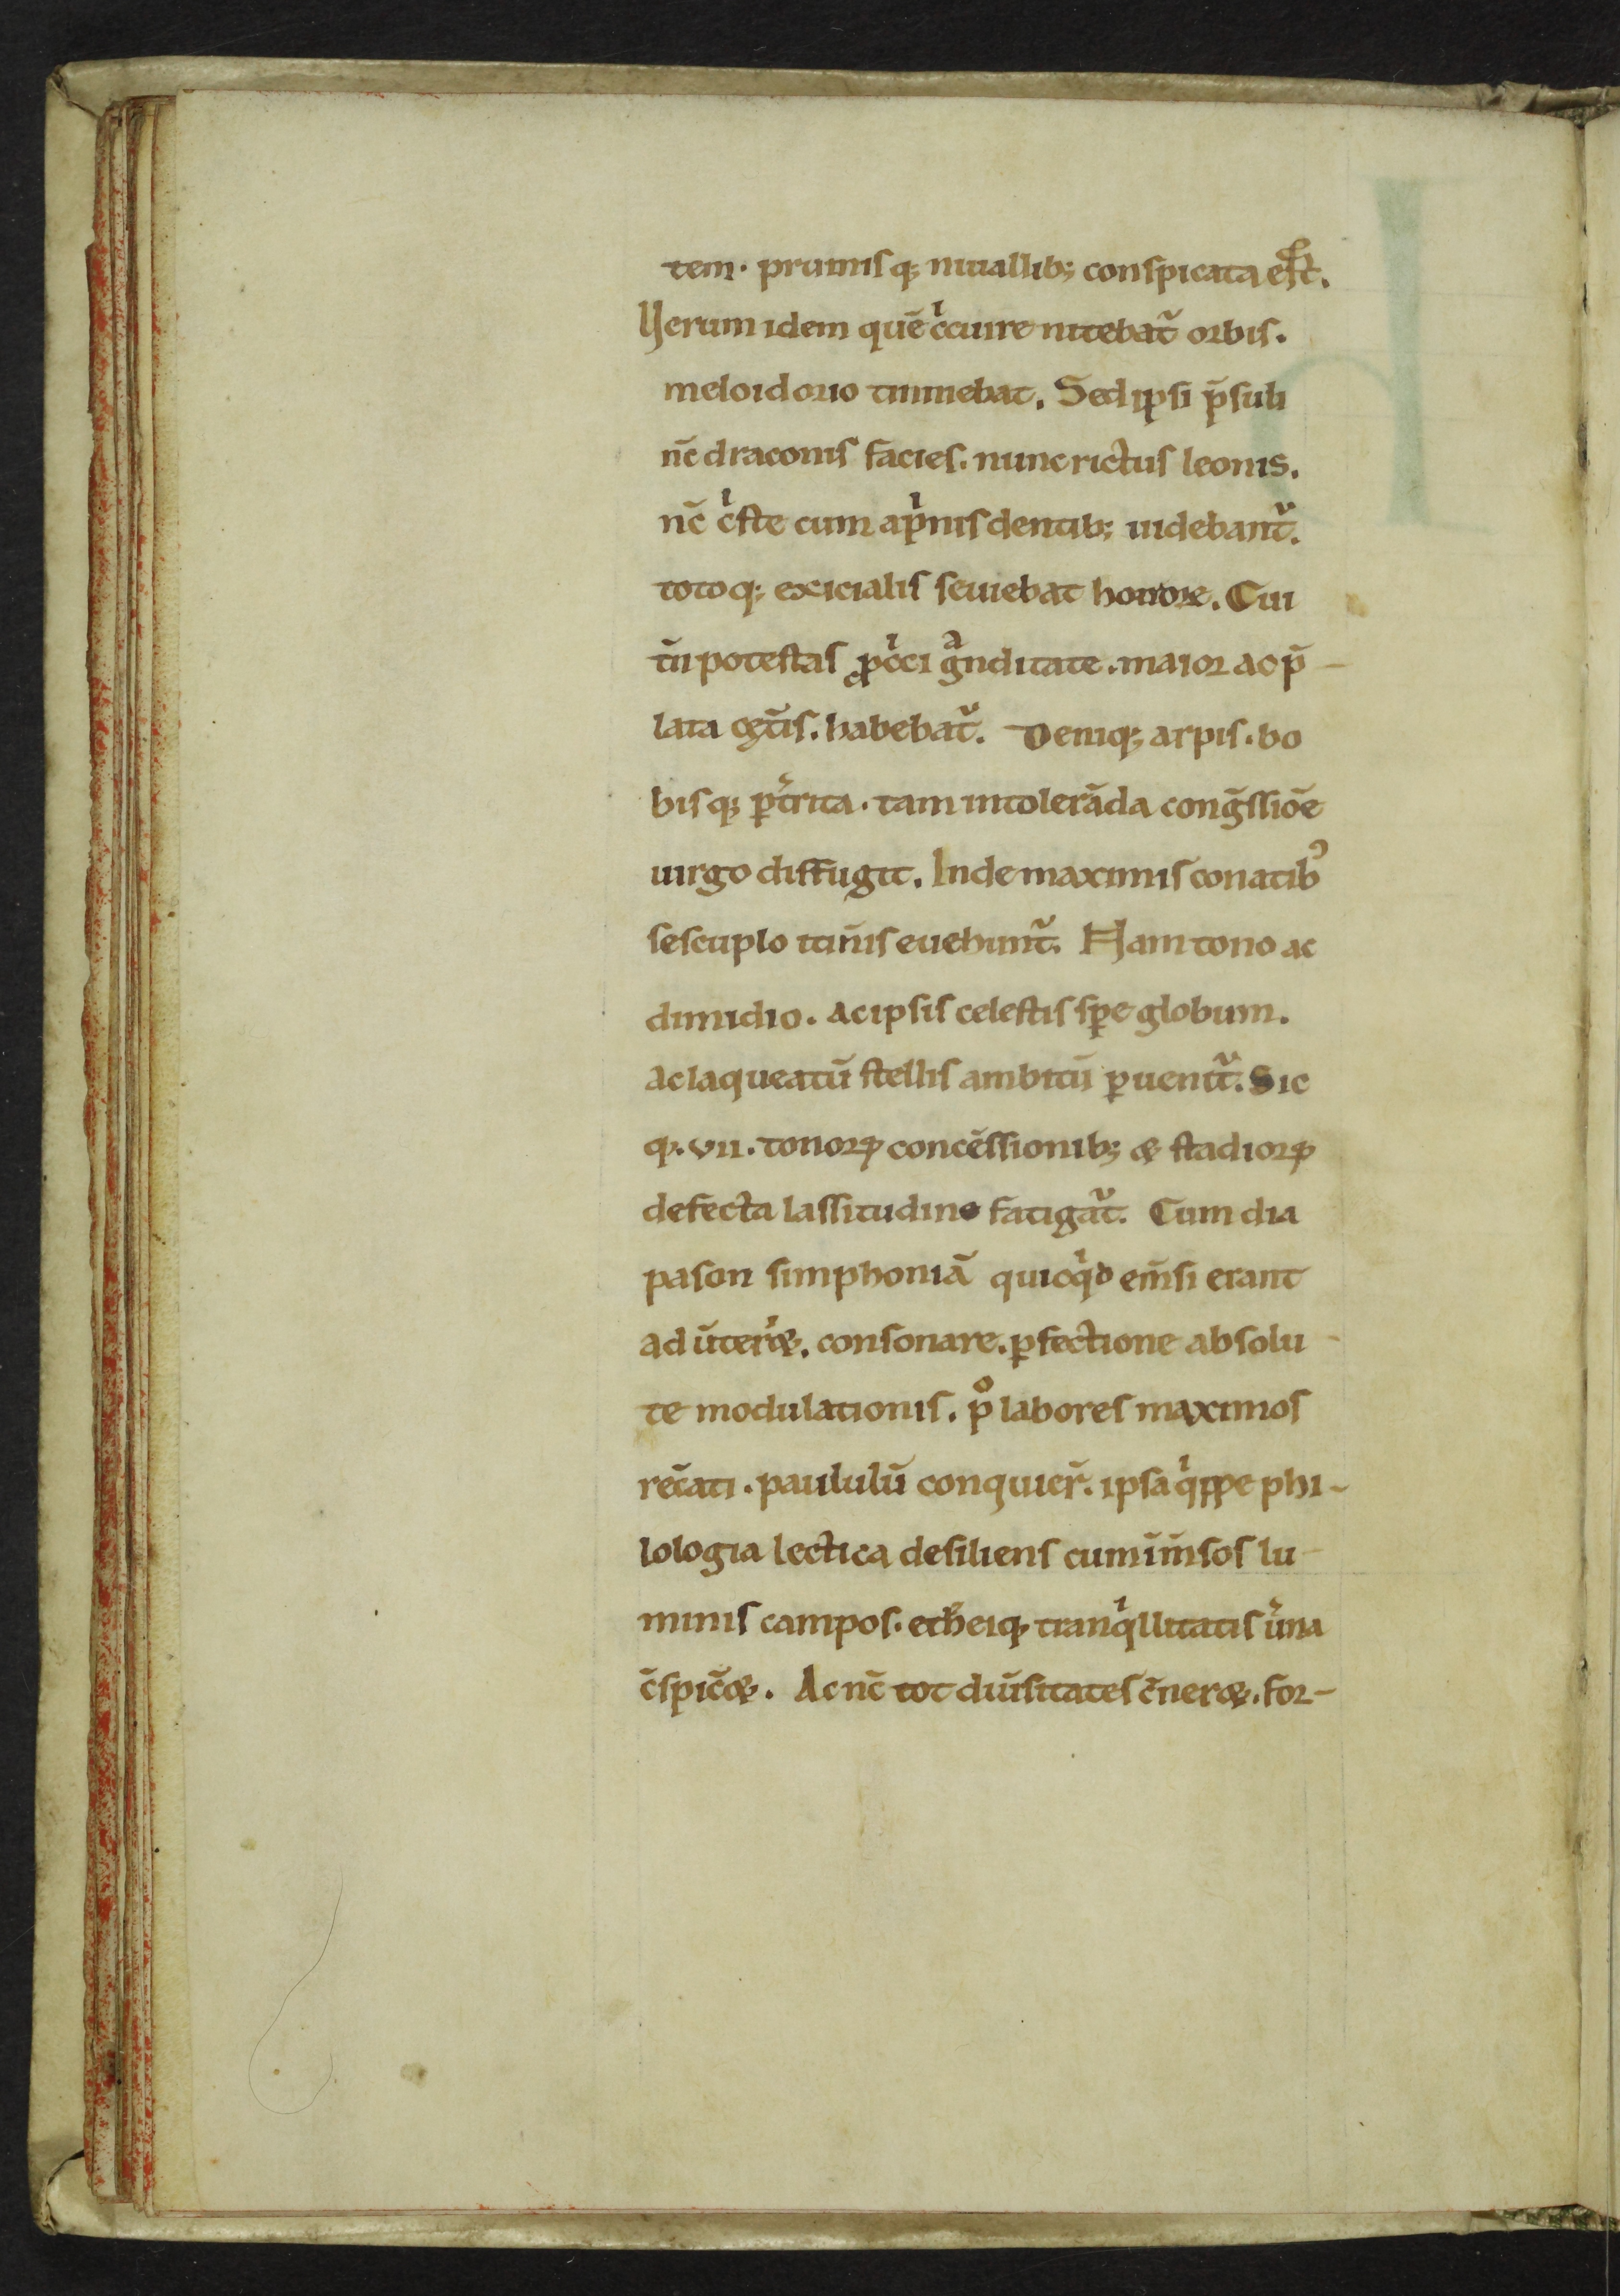 tem. pruinisq; niuallib; conspicata est.
Verum idem quē cͥcuire nitebat᷑ orbis.
meloidorio tinniebat. Sed ipsi p̄suli
nc̄ draconis facies. nunc rictus leonis.
nc̄ cͥste cum apͥnis dentib; uidebant᷑.
totoq; exicialis seuiebat horrore. Cui
tn̄ potestas ꝓ cͥci gͣnditate. maior ac p̄-
lata cet̄is. habebat᷑. Deniq; arpis. bo
bisq; ꝑtͥrita. tam intolerāda conḡssiōe
uirgo diffugit. Inde maximis conatibꝰ
sescuplo itin̄is euehunt᷑. Nam tono ac
dimidio. Ac ipsis celestis sꝑe globum.
ac laqueatū stellis ambitū ꝑuenit᷑. Sic
q;. vii. tonoꝝ concēssionib; & stadioꝝ
defecta lassitudine fatigat᷑. Cum dia
pason simphoniā quicqͥd em̄si erant
aduter̄&. consonare. ꝑfectione absolu-
te modulationis. p° labores maximos
rec̄ati. paululū conquier̄. ipsa qͥppe phi-
lologia lectica desiliens cum im̄sos lu-
minis campos. eth̄eiq; tranqͥllitatis u̾na
c̄spic̄&. Ac nc̄ tot diu̾sitates c̾ner&. for-